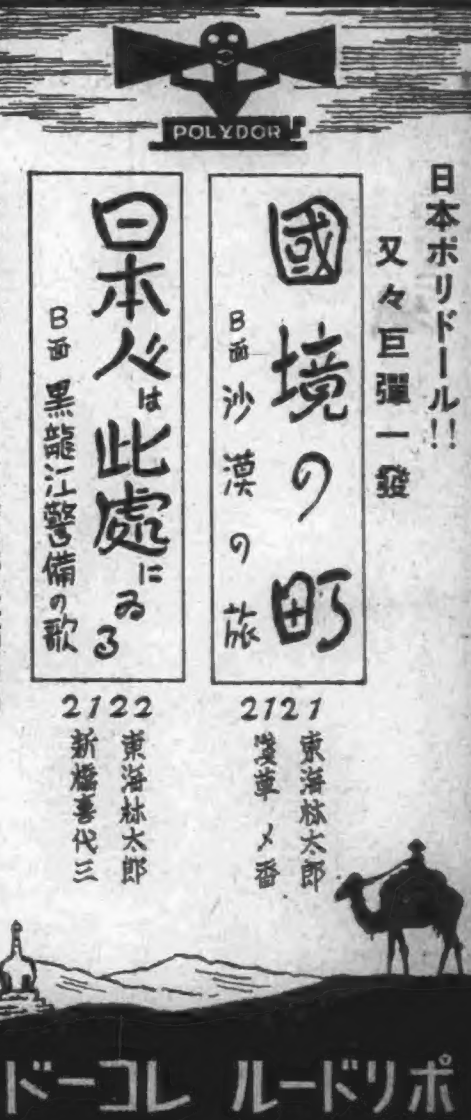 POLYDOR
日本ポリドール!!
又々巨彈一發
國境の町
B面 沙漠の旅
2121
東海林太郎
淺草〆香
日本人は此處にゐる
B面 黒龍江警備の歌
2122
東海林太郎
新橋喜代三
ポリドール レコード